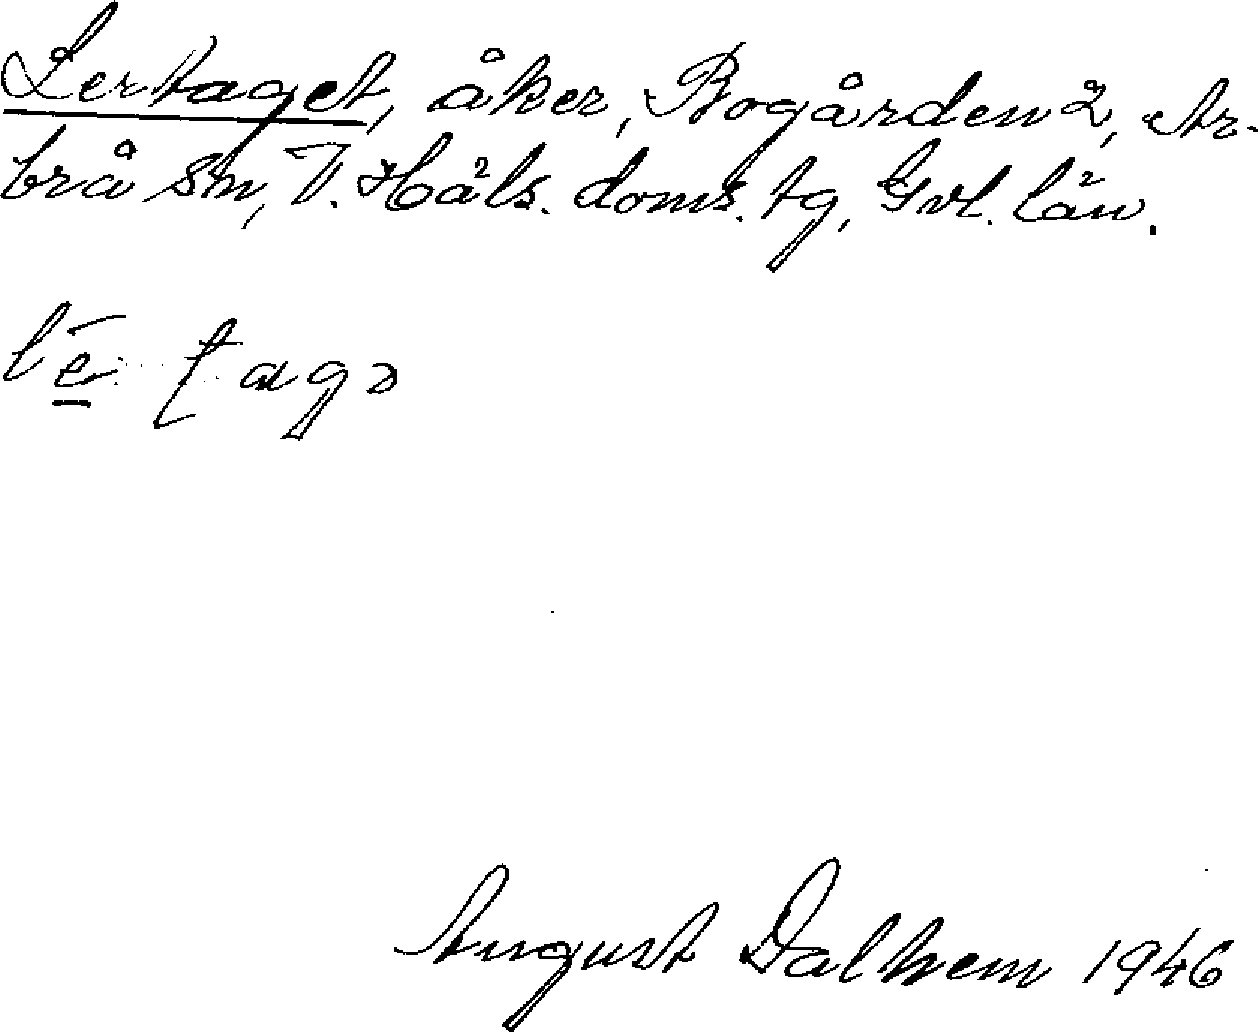 Lertaget, åker, Bogården 2, Ar-
brå sn, V. Häls. doms. tg, Gvl. län.
August Dalhem 1946